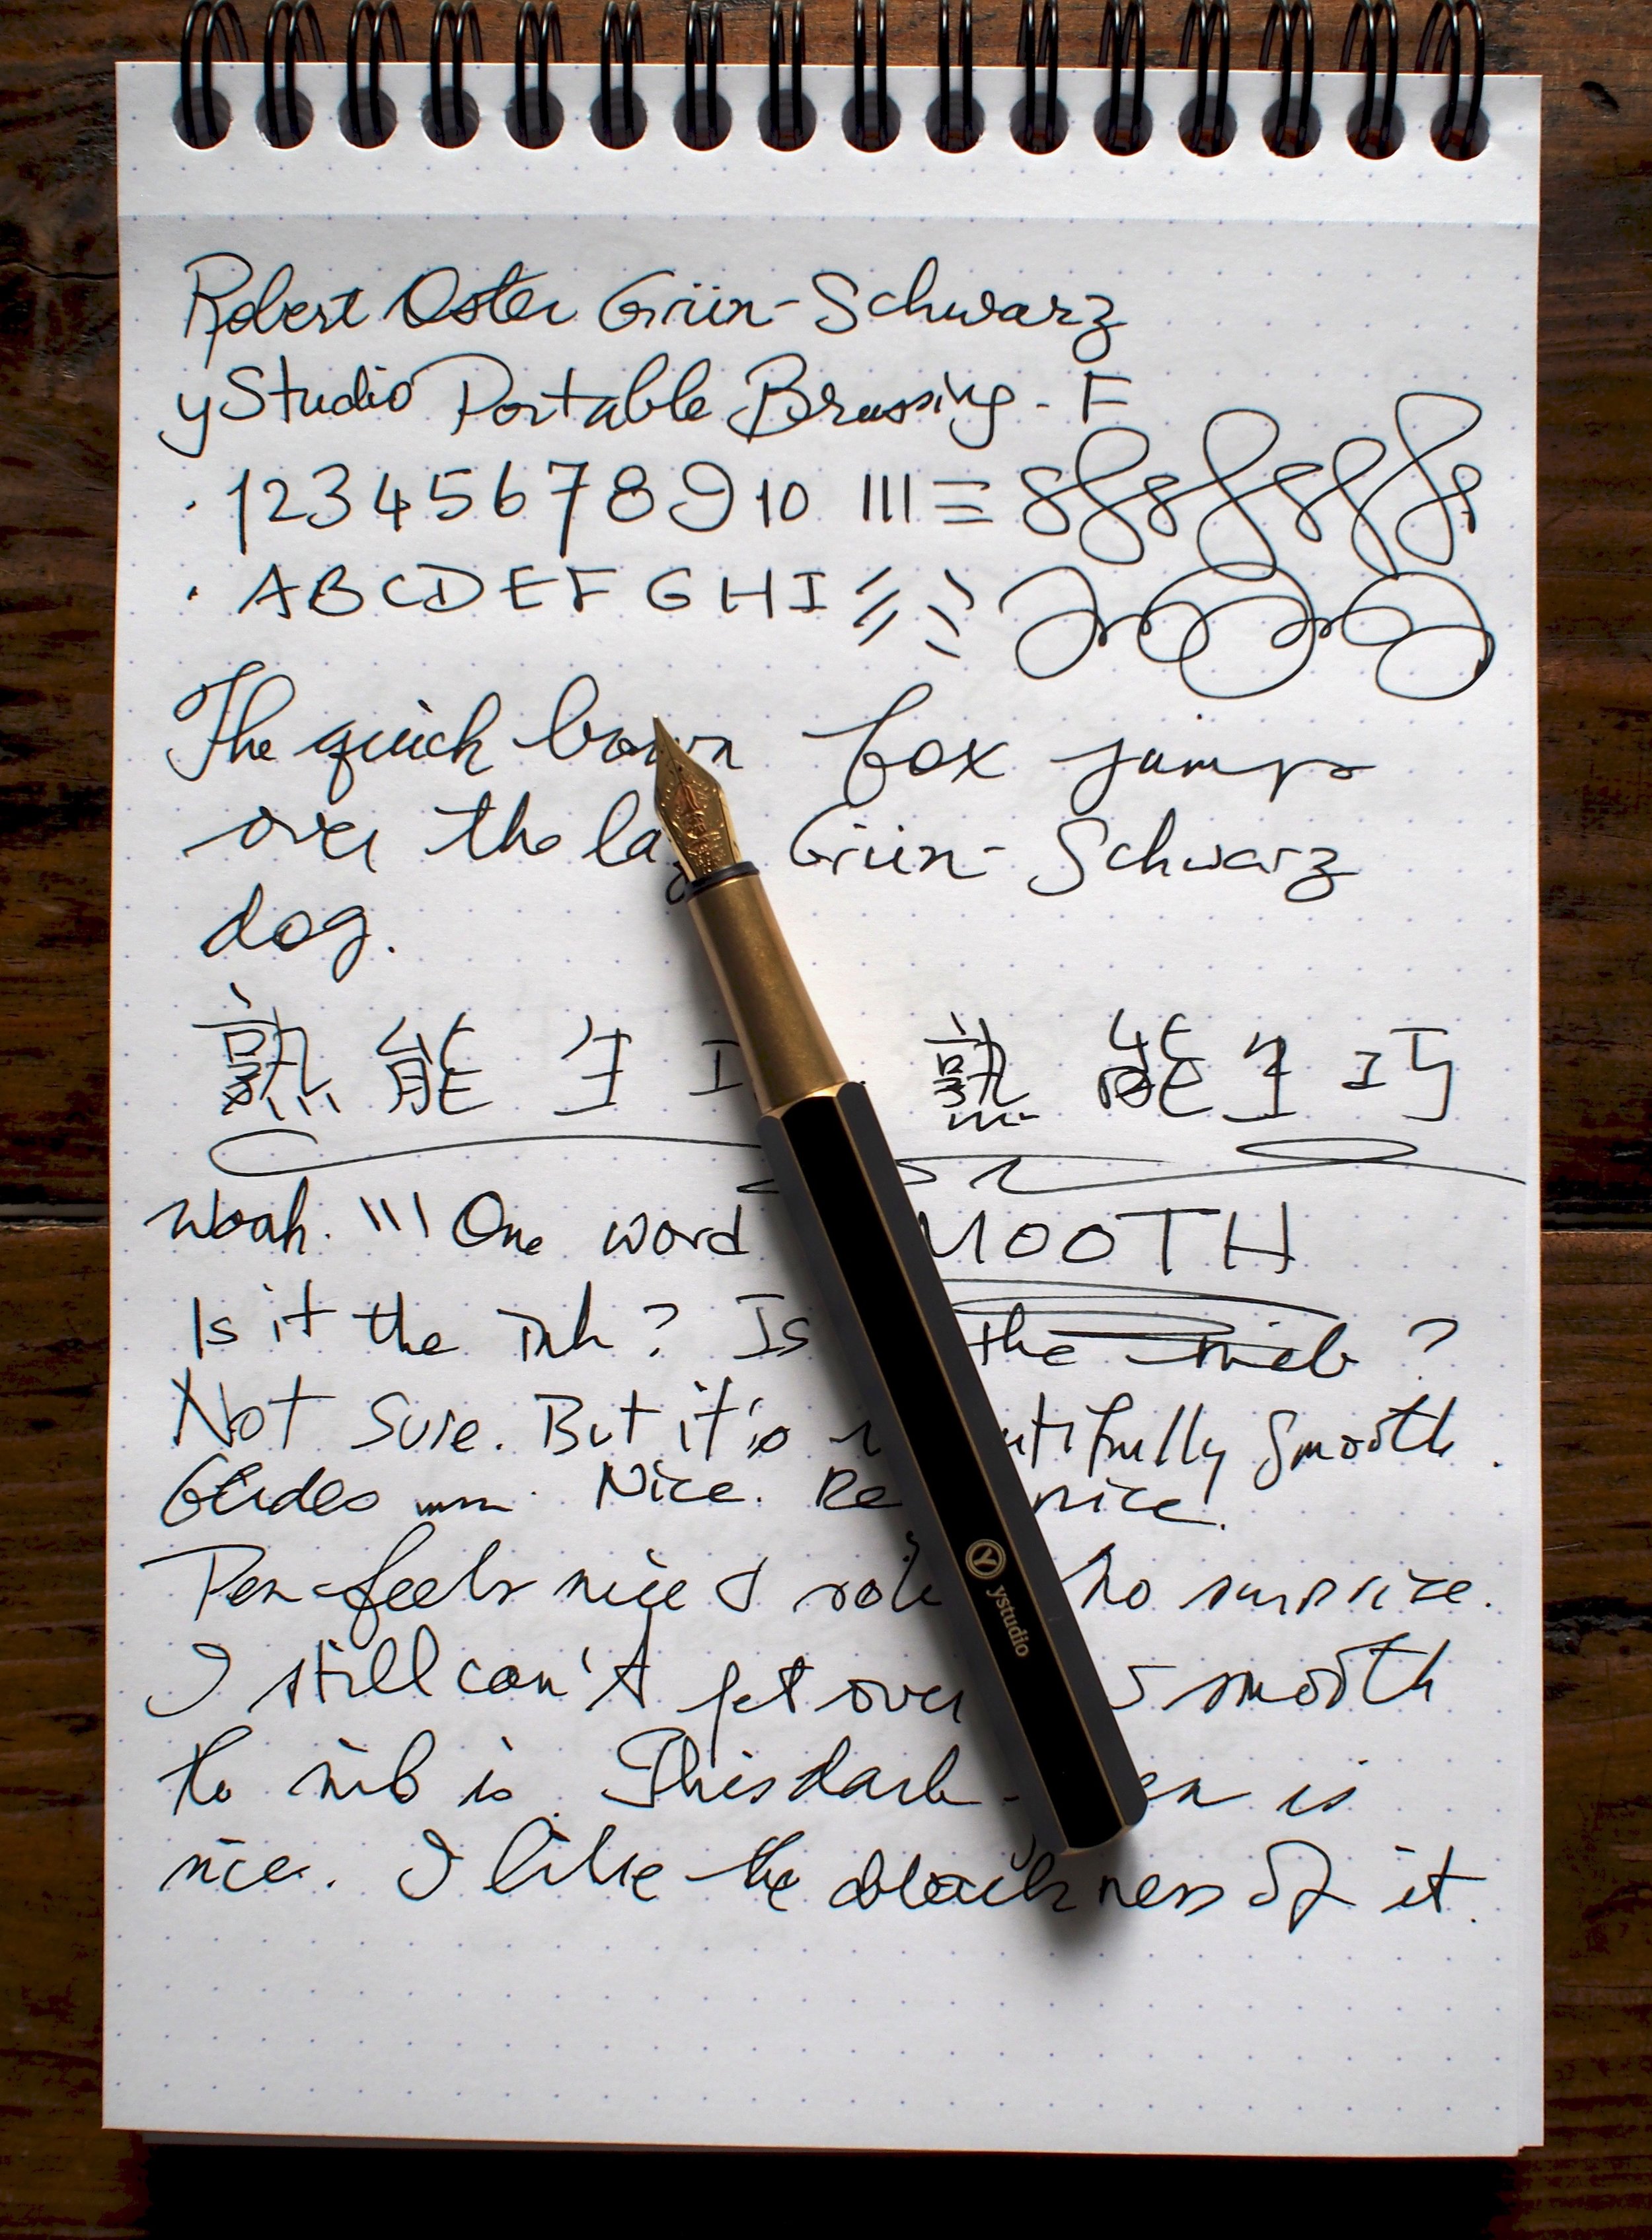 Robert Oster Grün-Schwarz
yStudio Portable Brassing - F
· 1 2 3 4 5 6 7 8 9 10
· A B C D E F G H I
The quick brown fox jumps
over the la Grün-Schwarz
dog.
熟能生 熟能生巧
Woah. One word MOOTH
Is it the ink? Is the nib?
Not sure. But it's utifully smooth.
Glides Nice. Re nice.
Pen feels nice & no surprise.
I still can't get over smooth
the nib is. This dark- is
nice. I like the blackness of it.
ystudio